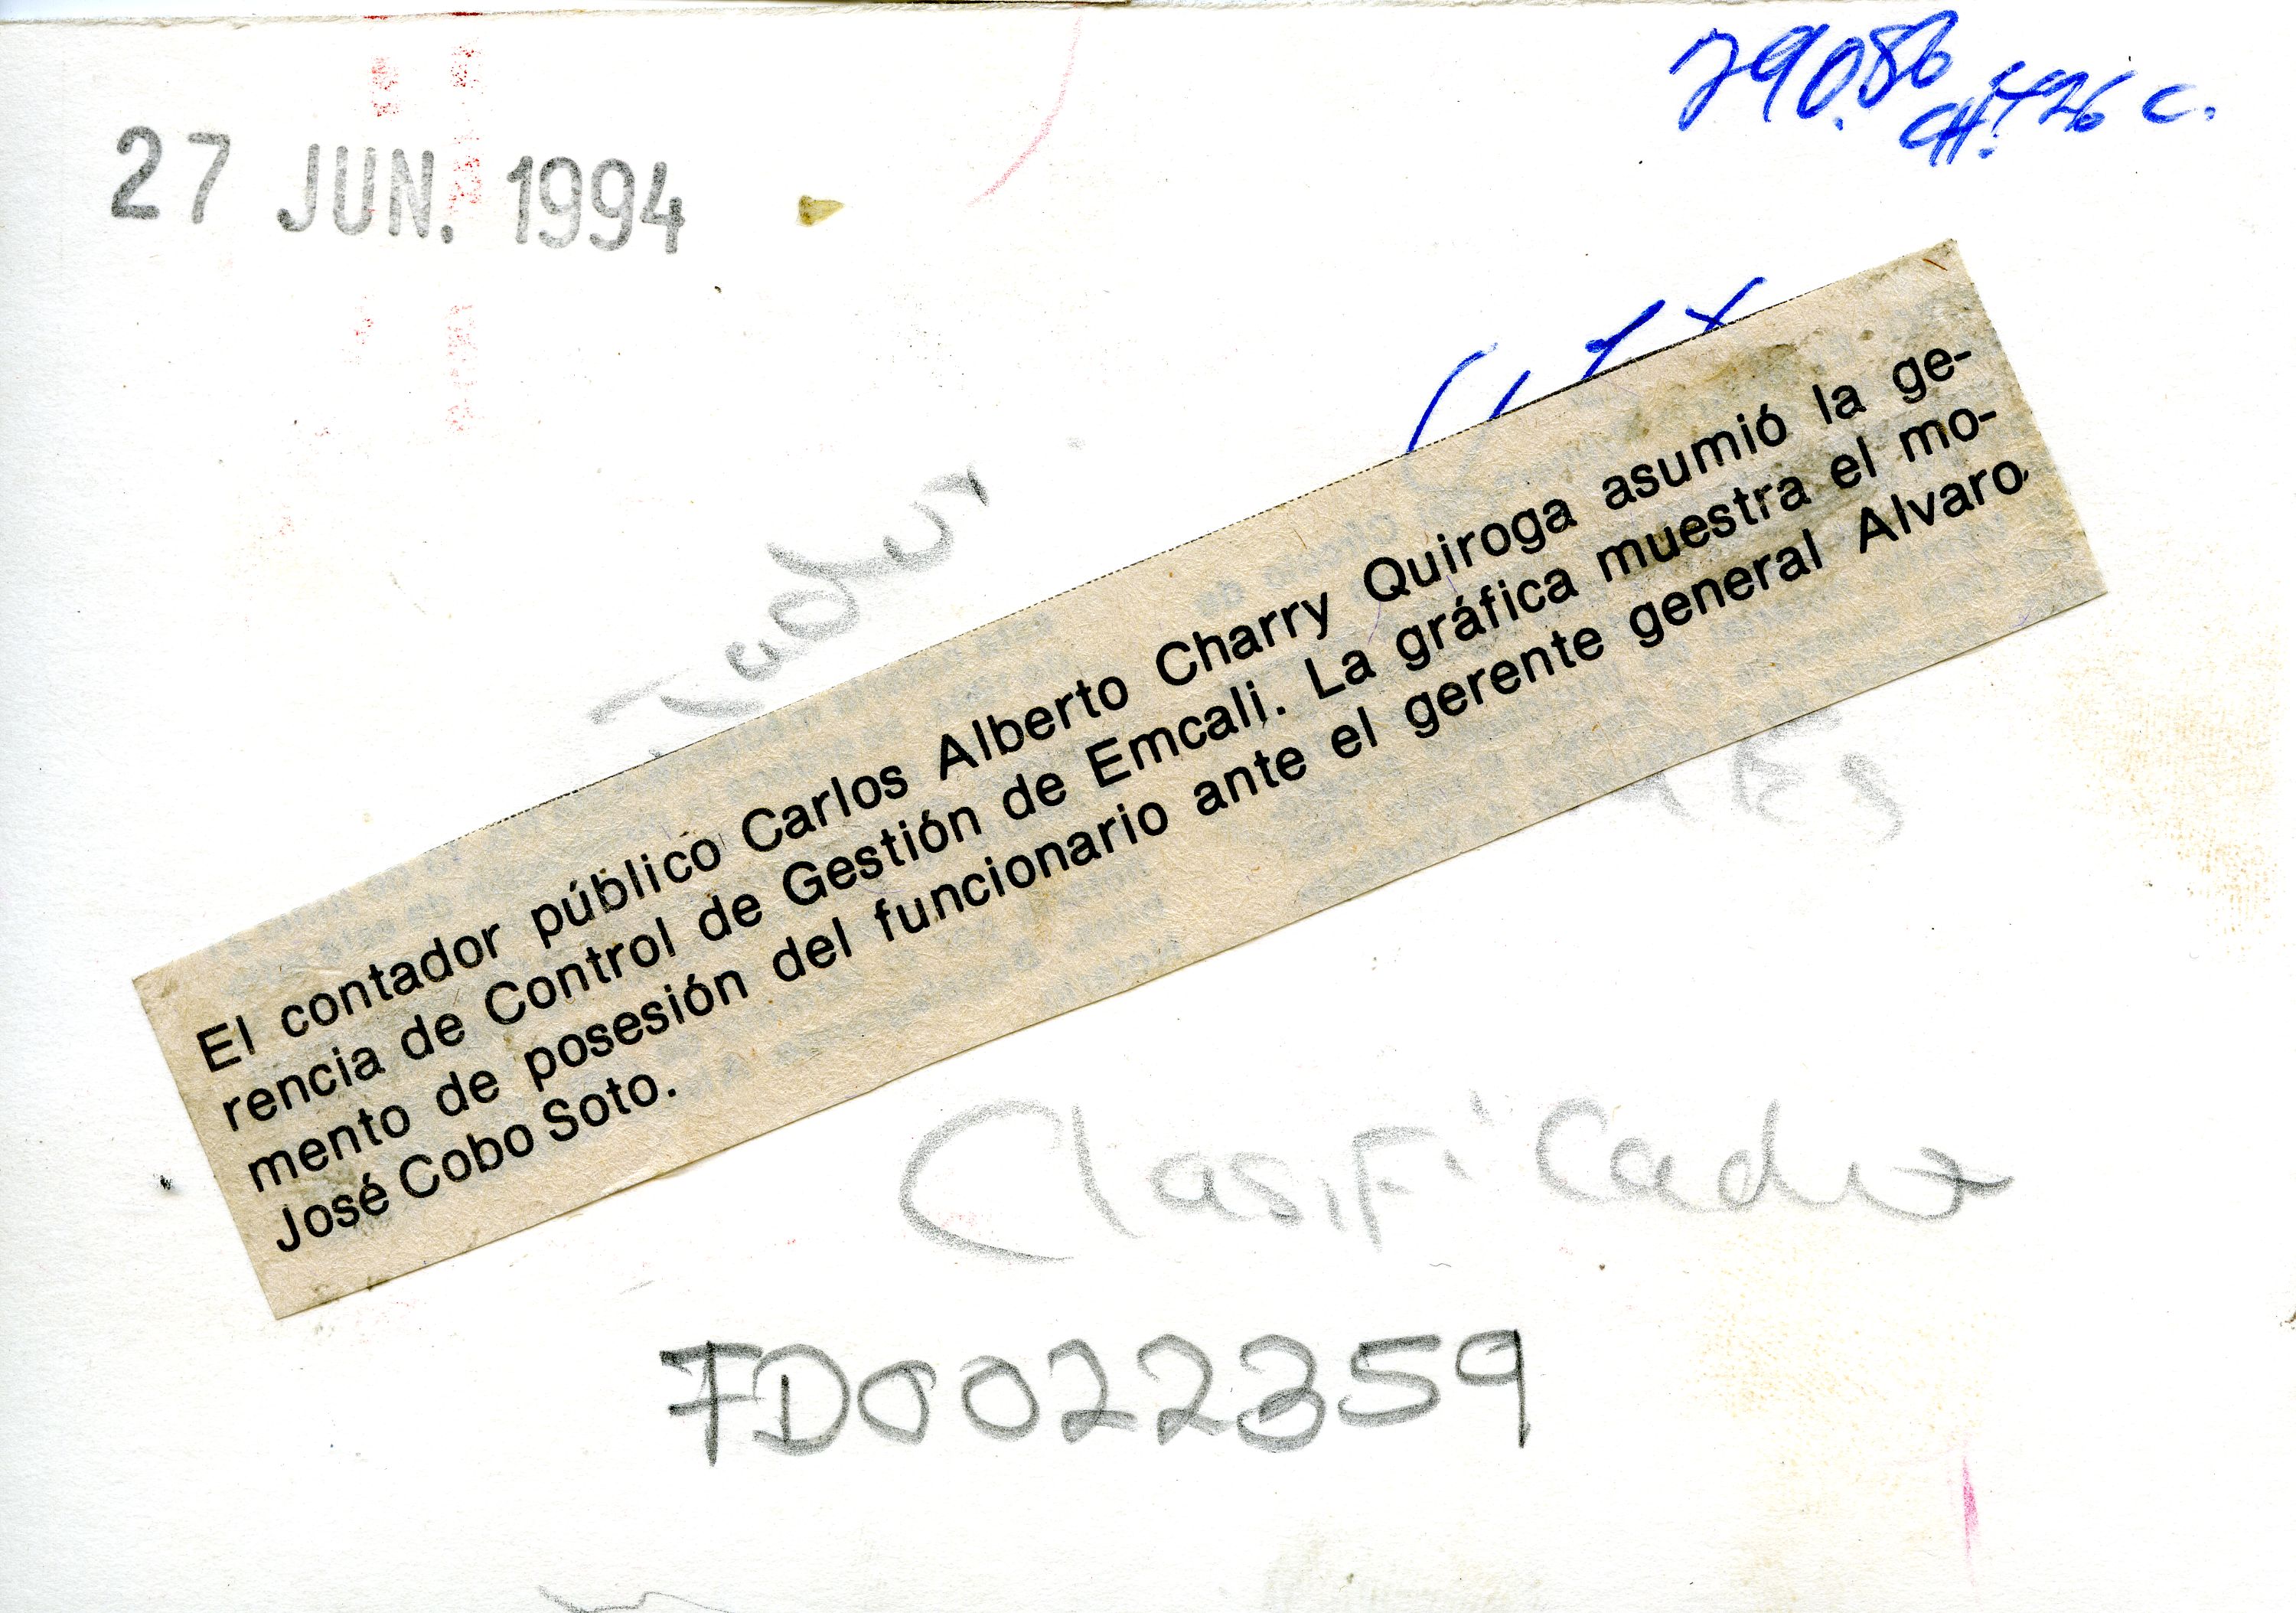 79086
CH. 426 C.
27 JUN. 1994
El contador público Carlos Alberto Charry Quiroga asumió la ge-
rencia de Control de Gestión de Emcali. La gráfica muestra el mo-
mento de posesión del funcionario ante el gerente general Alvaro
José Cobo Soto.
Clasificador
FD0022359